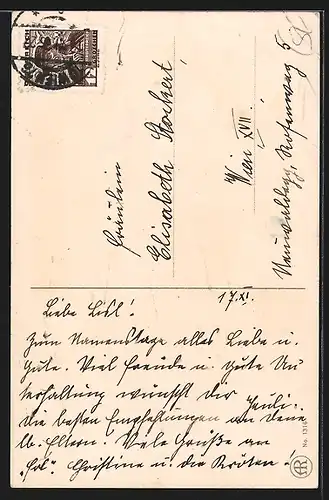 Fräulein
Elisabeth
Wien XVII.
Neuwaldegg, Rosenweg 5
17.XI.
Liebe Lisl!
Zum Namenstage alles Liebe u.
Gute. Viel Freude u. gute Un
terhaltung wünscht dir Pauli.
Die besten Empfehlungen an deine
lb. Eltern. Viele Grüße am
Christine u. die Kröten!
No. 1316